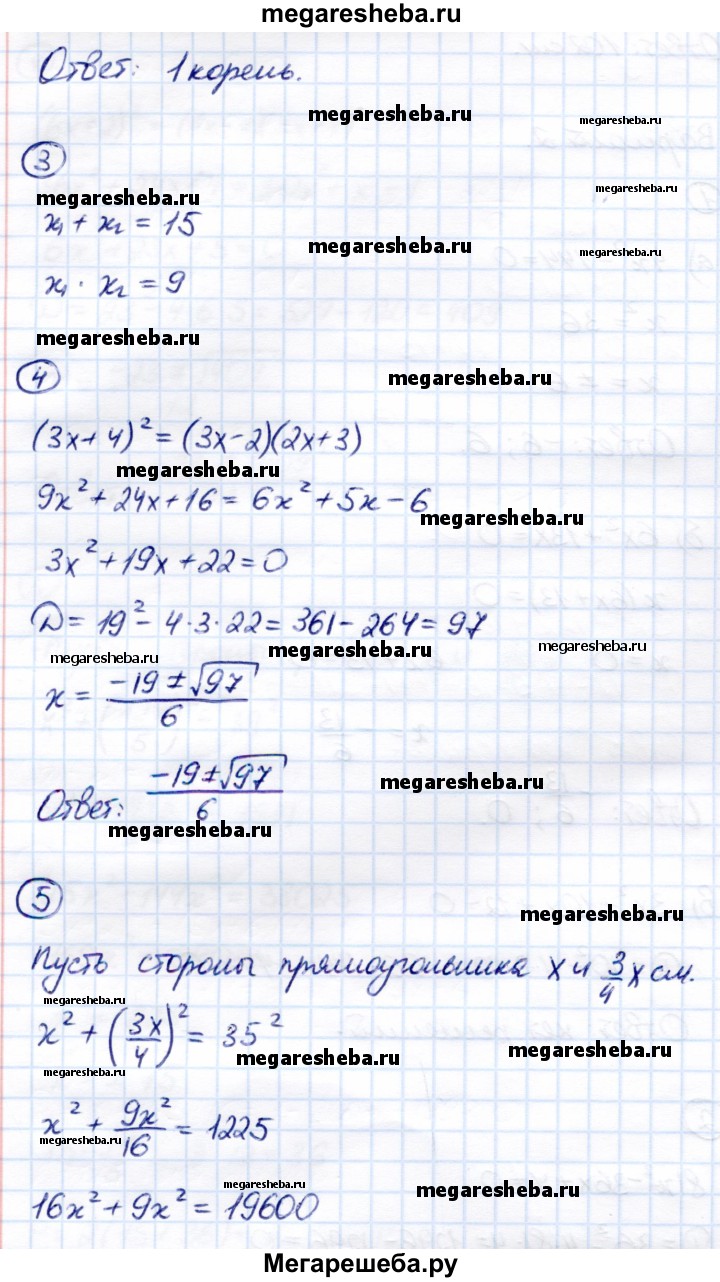 megaresheba.ru
Ответ: 1 корень.
megaresheba.ru
megaresheba.ru
3
megaresheba.ru
megaresheba.ru
x₁ + x₂ = 15
megaresheba.ru
megaresheba.ru
x₁ · x₂ = 9
megaresheba.ru
4
megaresheba.ru
(3x+4)² = (3x-2)(2x+3)
megaresheba.ru
9x² + 24x + 16 = 6x² + 5x - 6
megaresheba.ru
3x² + 19x + 22 = 0
D = 19² - 4·3·22 = 361 - 264 = 97
megaresheba.ru
megaresheba.ru
megaresheba.ru
x = (-19 ± √97)/6
Ответ: (-19 ± √97)/6
megaresheba.ru
megaresheba.ru
5
megaresheba.ru
Пусть стороны прямоугольника x и 3/4 x см.
megaresheba.ru
x² + (3x/4)² = 35²
megaresheba.ru
megaresheba.ru
megaresheba.ru
x² + 9x²/16 = 1225
megaresheba.ru
megaresheba.ru
megaresheba.ru
16x² + 9x² = 19600
Мегарешеба.ру